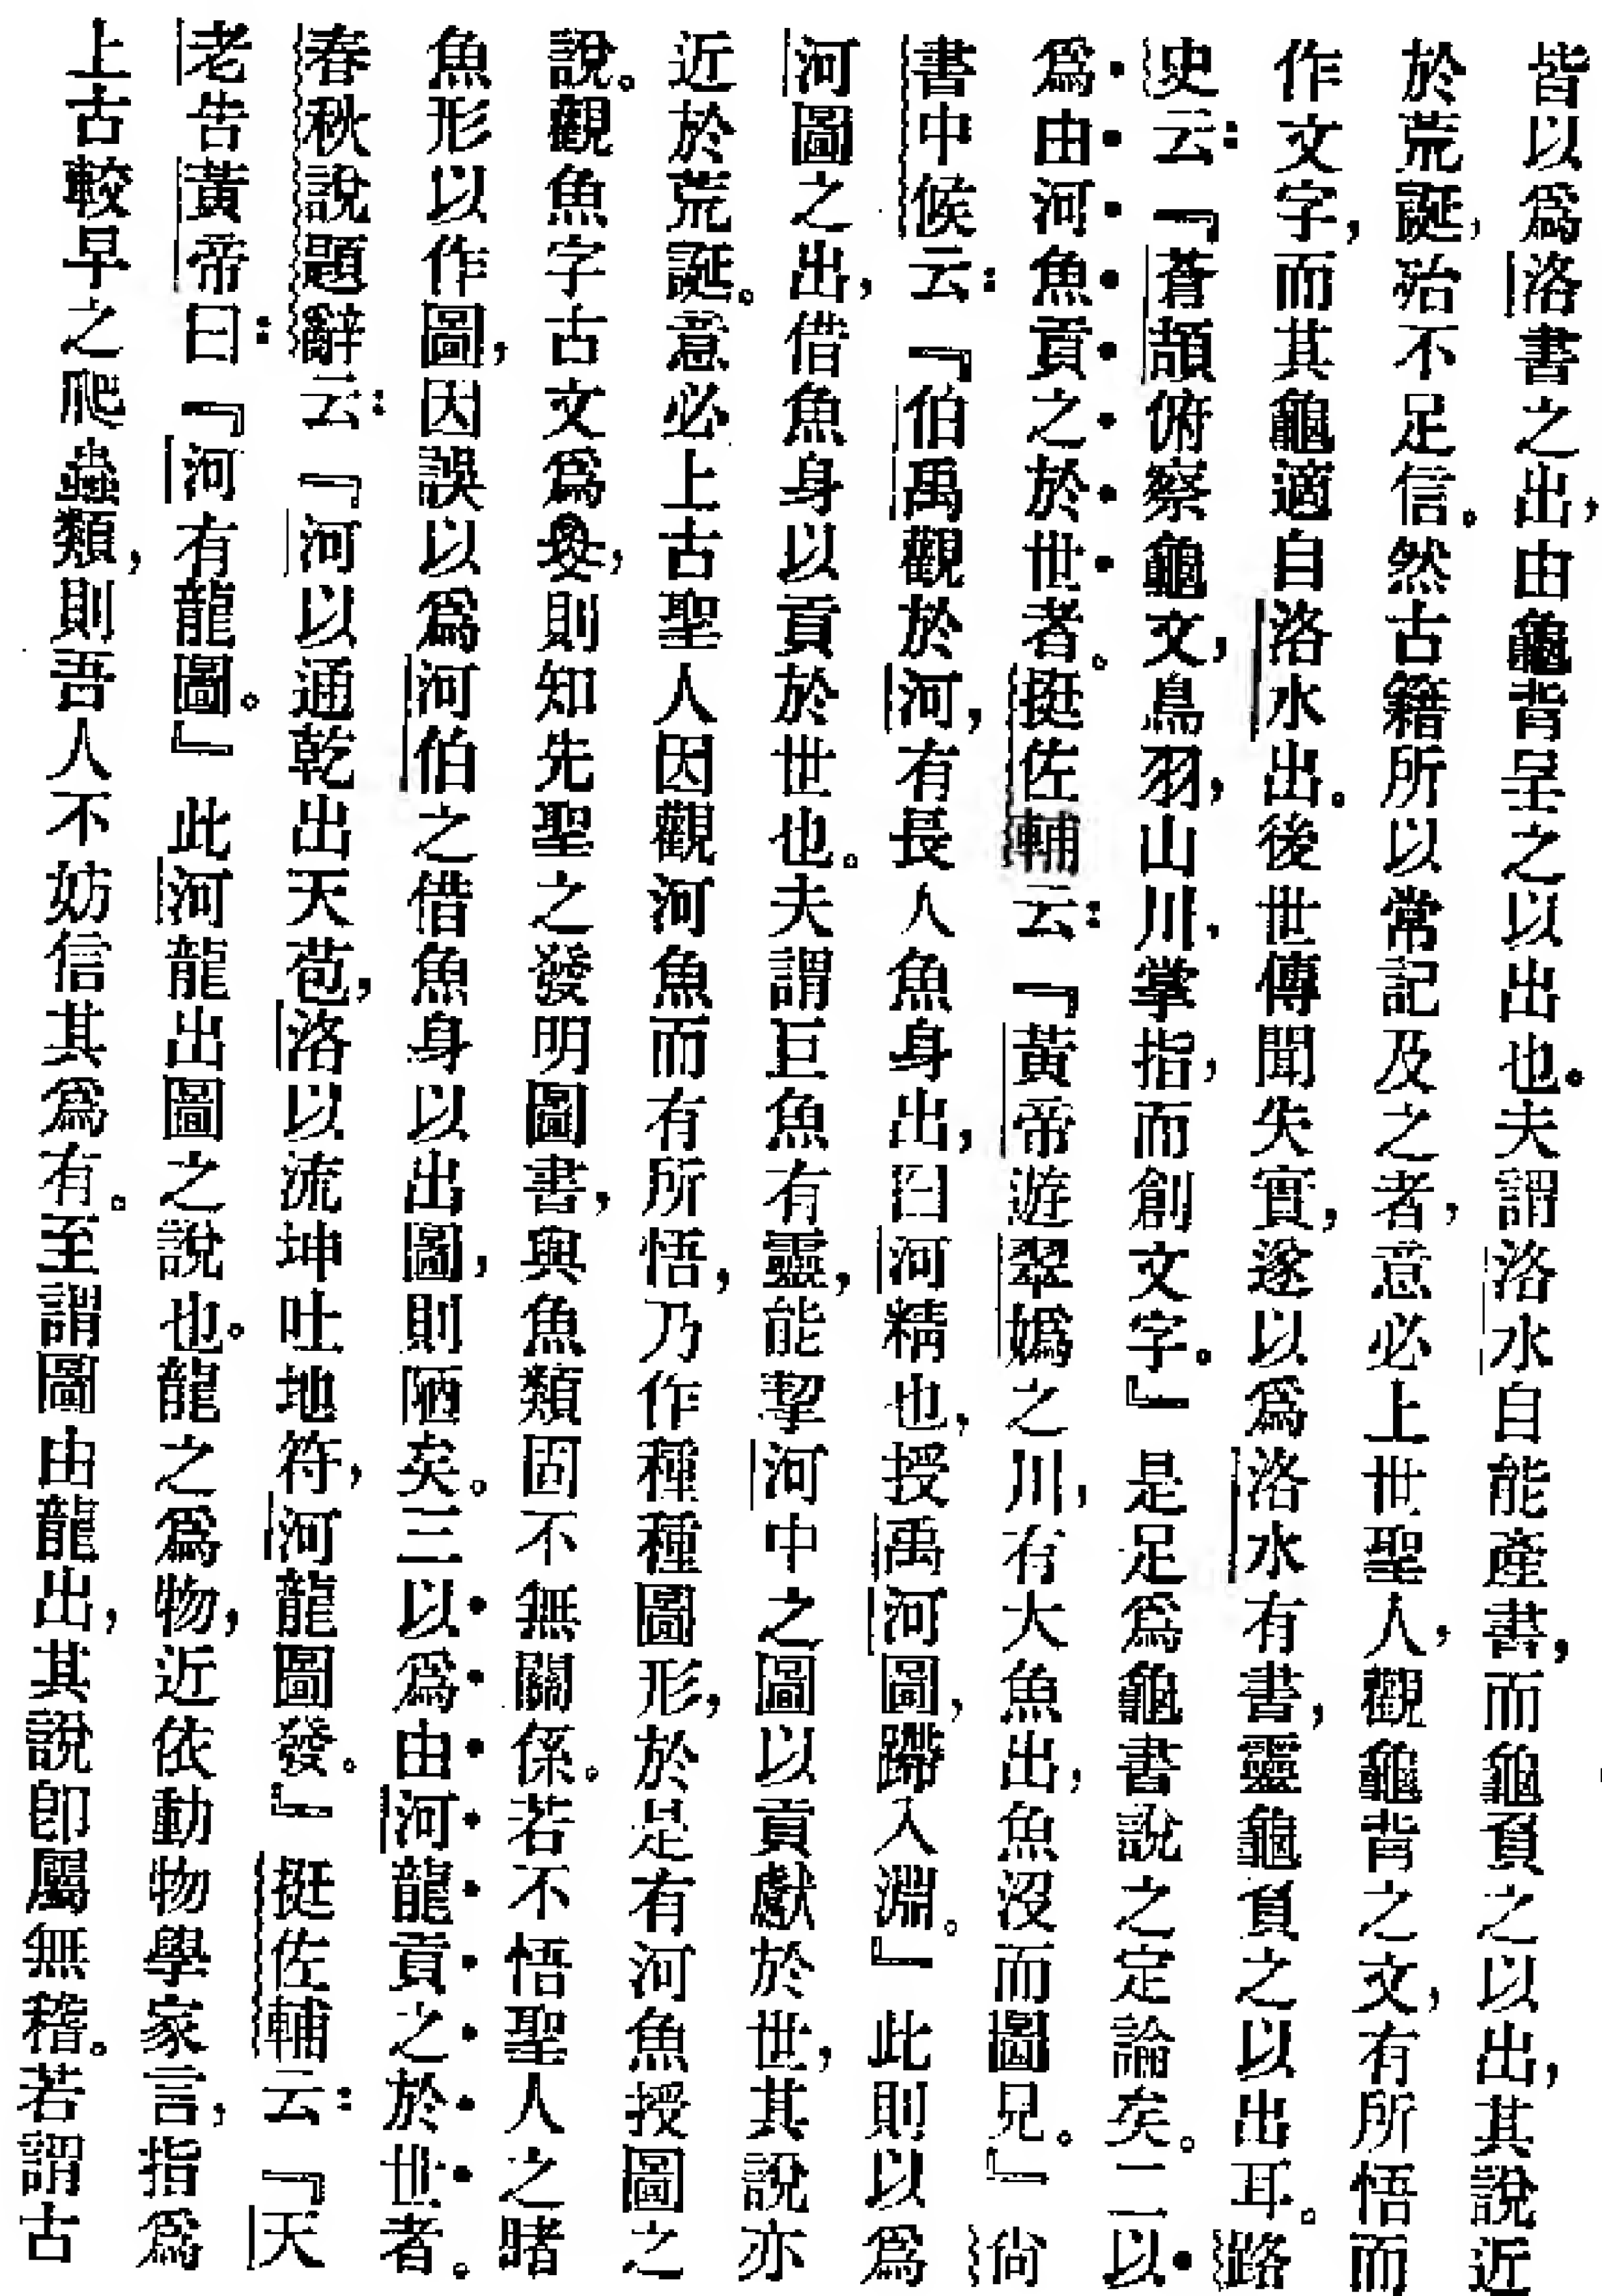 皆以爲洛書之出，由龜背呈之以出也。夫謂洛水自能產書，而龜負之以出，其說近
於荒誕，殆不足信。然古籍所以常記及之者，意必上世聖人，觀龜背之文，有所悟而
作文字，而其龜適自洛水出。後世傳聞失實，遂以爲洛水有書，靈龜負之以出耳。路
史云：『蒼頡俯察龜文，鳥羽，山川，掌指，而創文字。』是足爲龜書說之定論矣。二以
爲由河魚貢之於世者。挺佐輔云：『黃帝遊翠嬀之川，有大魚出，魚沒而圖見。』尙
書中候云：『伯禹觀於河，有長人魚身出，曰河精也，授禹河圖，躃入淵。』此則以爲
河圖之出，借魚身以貢於世也。夫謂巨魚有靈，能挈河中之圖以貢獻於世，其說亦
近於荒誕。意必上古聖人因觀河魚而有所悟，乃作種種圖形，於是有河魚授圖之
說。觀魚字古文爲，則知先聖之發明圖書，與魚類固不無關係。若不悟聖人之睹
魚形以作圖，因誤以爲河伯之借魚身以出圖，則陋矣。三以爲由河龍貢之於世者。
春秋說題辭云：『河以通乾出天苞，洛以流坤吐地符，河龍圖發。』挺佐輔云：『天
老告黃帝曰：『河有龍圖。』此河龍出圖之說也。龍之爲物，近依動物學家言，指爲
上古較早之爬蟲類，則吾人不妨信其爲有。至謂圖由龍出，其說卽屬無稽。若謂古